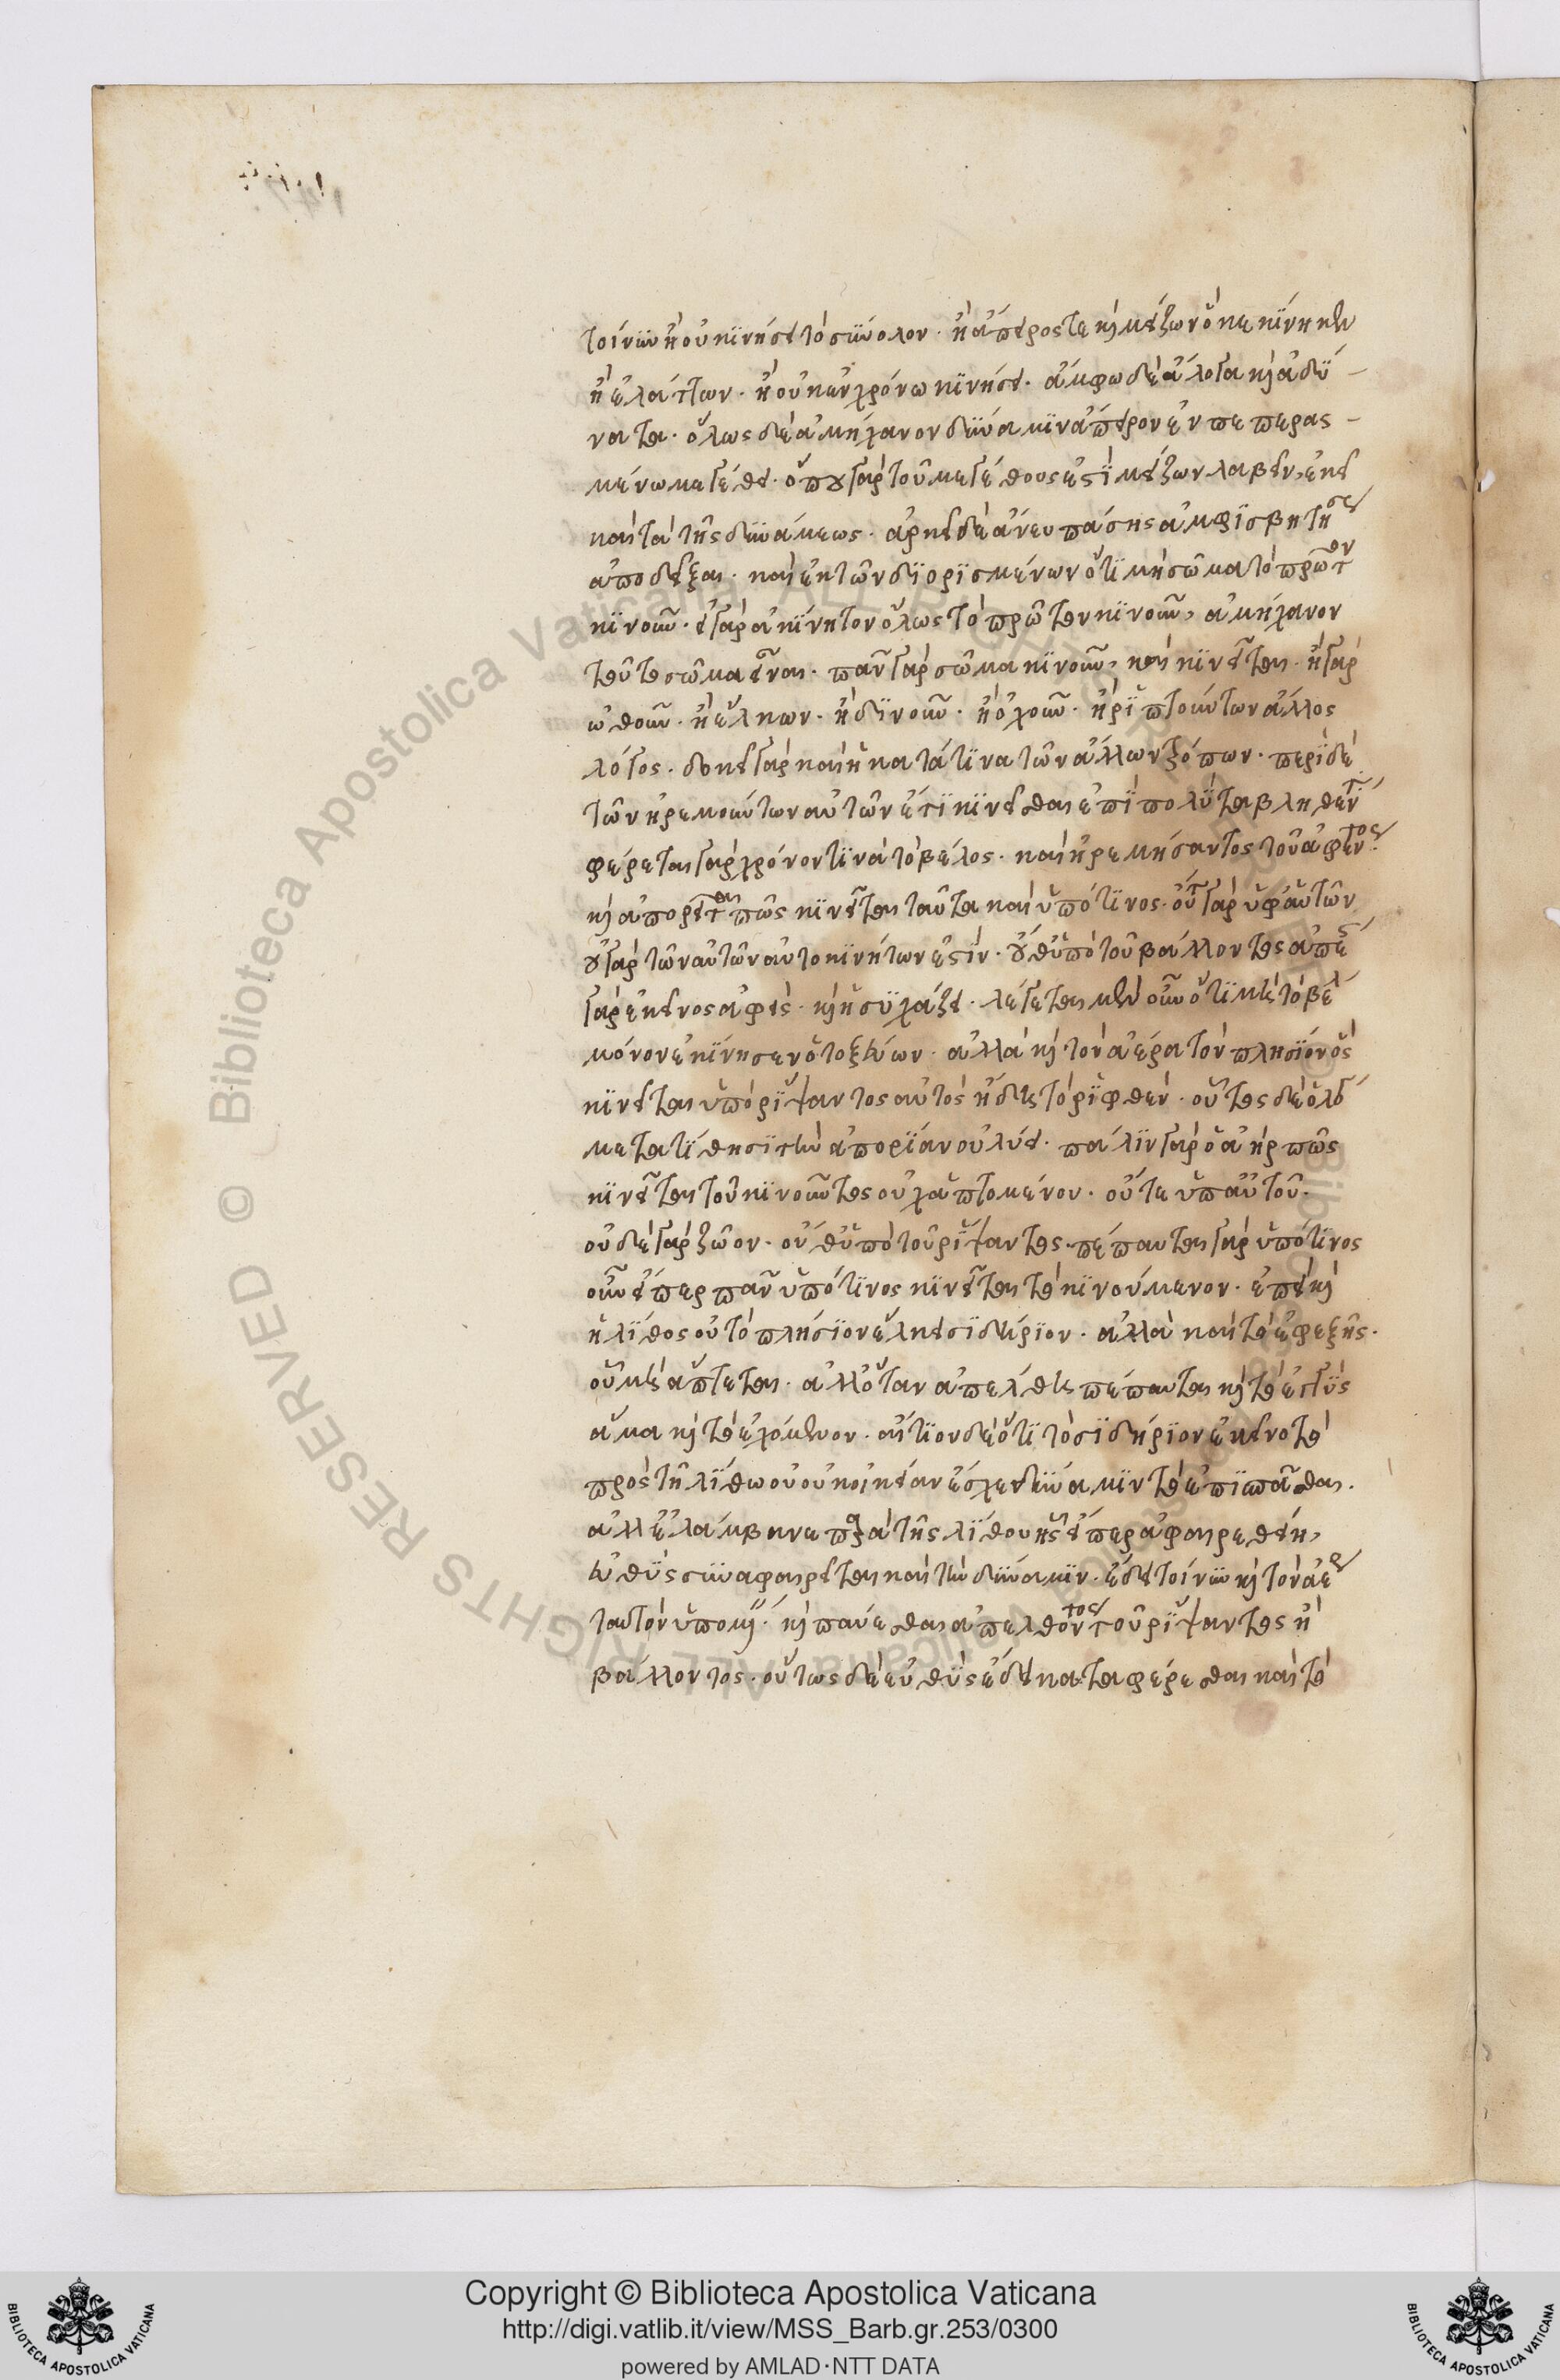 τοίνυν ἢ οὐ κινήσει τὸ σύνολον. ἢ ἄπειρός τε καὶ μείζων ὃ κεκίνηκεν
ἢ ἐλάττων. ἢ οὐκ ἐν χρόνω κινήσει. ἄμφω δὲ ἄλογα καὶ ἀδύ-
νατα. ὅλως δὲ ἀμήχανον δύναμιν ἄπειρον ἐν πεπερασ-
μένω μεγέθει. ὅπου γὰρ τοῦ μεγέθους ἐστὶ μεῖζων λαβεῖν, ἐκεῖ
καὶ τὰ τῆς δυνάμεως. ἀρκεῖ δὲ ἄνευ πάσης ἀμφισβητήσε
ἀποδεῖξαι. καὶ ἐκ τῶν διορισμένων ὅτι μὴ σῶμα τὸ πρῶτον
κινοῦν. εἰ γὰρ ἀκίνητον ὅλως τὸ πρῶτον κινοῦν, ἀμήχανον
τοῦτο σῶμα εἶναι. πᾶν γὰρ σῶμα κινοῦν, καὶ κινεῖται. ἢ γὰρ
ὠθοῦν. ἢ ἕλκων. ἢ δινοῦν. ἢ ὀχοῦν. ἢ ῥιπτούντων ἄλλος
λόγος. δοκεῖ γὰρ καὶ ἡ κατά τινα τῶν ἄλλων τρόπων. περὶ δὲ
τῶν ἠρεμούντων αὐτῶν ἔτι κινεῖσθαι ἐπιπολὺ τὰ βληθέντ
φέρεται γὰρ χρόνον τινὰ τὸ βέλος. καὶ ἠρεμήσαντος τοῦ ἀφέντος.
καὶ ἀπορεῖται πῶς κινεῖται ταῦτα καὶ ὑπό τινος. οὔτ γὰρ ὑφ' αὑτῶν
οὐ γὰρ τῶν αὐτῶν αὐτοκινήτων ἐστίν. οὔθ' ὑπὸ τοῦ βάλλοντος ἄπε
γὰρ ἐκεῖνος ἀφεὶς. καὶ ἡσυχάζει. λέγεται μὲν οὖν ὅτι μὴ τὸ βέλ
μόνον ἐκίνησεν ὁ τοξεύων. ἀλλὰ καὶ τὸν ἀέρα τὸν πλησίον ὃς
κινεῖται ὑπὸ ῥίψαντος αὐτὸς ἤδη τὸ ῥιφθέν. οὗτος δὲ ὁ λόγ
μετατίθησι τὴν ἀπορίαν οὐ λύει. πάλιν γὰρ ὁ ἀὴρ πῶς
κινεῖται τοῦ κινοῦντος οὐχ ἁπτομένου. οὔτε ὑπ' αὐτοῦ.
οὐδὲ γὰρ ζῶον. οὔθ' ὑπὸ τοῦ ῥίψαντος. πέπαυται γὰρ ὑπό τινος
οὖν εἴπερ πᾶν ὑπό τινος κινεῖται τὸ κινούμενον. ἐπεὶ καὶ
ἡ λίθος οὐ τὸ πλησίον ἕλκει σιδήριον. ἀλλὰ καὶ τὸ ἐφεξῆς.
οὗ μὴ ἅπτεται. ἀλλ' ὅταν ἀπελθη πέπαυται καὶ τὸ ἐγγὺς
ἅμα καὶ τὸ ἐχόμενον. αἴτιον δὲ ὅτι τὸ σιδήριον ἐκεῖνο τὸ
πρὸς τῆ λίθω οὐ οὐκοικείαν ἔσχε δύναμιν τὸ ἐπισπᾶσθαι.
ἀλλ' ἐλάμβανε παρὰ τῆς λίθου ἧς εἴπερ ἀφαιρεθείη,
εὐθὺς συναφαιρεῖται καὶ τὴν δύναμιν. ἔδει τοίνυν καὶ τὸν ἀέρ
ταυτὸν ὑπομ. καὶ παύεσθαι ἀπελθόντος τοῦ ῥίψαντος ἢ
βάλλοντος. οὕτως δὲ εὐθὺς ἔδει καταφέρεσθαι καὶ τὸ
Copyright © Biblioteca Apostolica Vaticana
http://digi.vatlib.it/view/MSS_Barb.gr.253/0300
powered by AMLAD·NTT DATA